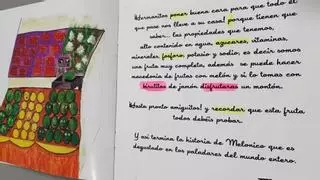 ¡Hermanitos poner buena cara para que todo el
que pase nos lleve a su casa! porque tienen que
saber... las propiedades que tenemos,
alto contenido en agua, azucares, vitaminas,
minerales, fosforo, potasio y sodio; es decir somos
una fruta muy completa, además se puede hacer
macedonia de frutas con melón y si lo tomas con
virutitas de jamón disfrutaras un montón.
¡Hasta pronto amiguitos! y recordar que esta fruta
todos debéis probar.
Y asi termina la historia de Melonico que es
degustado en los paladares del mundo entero.